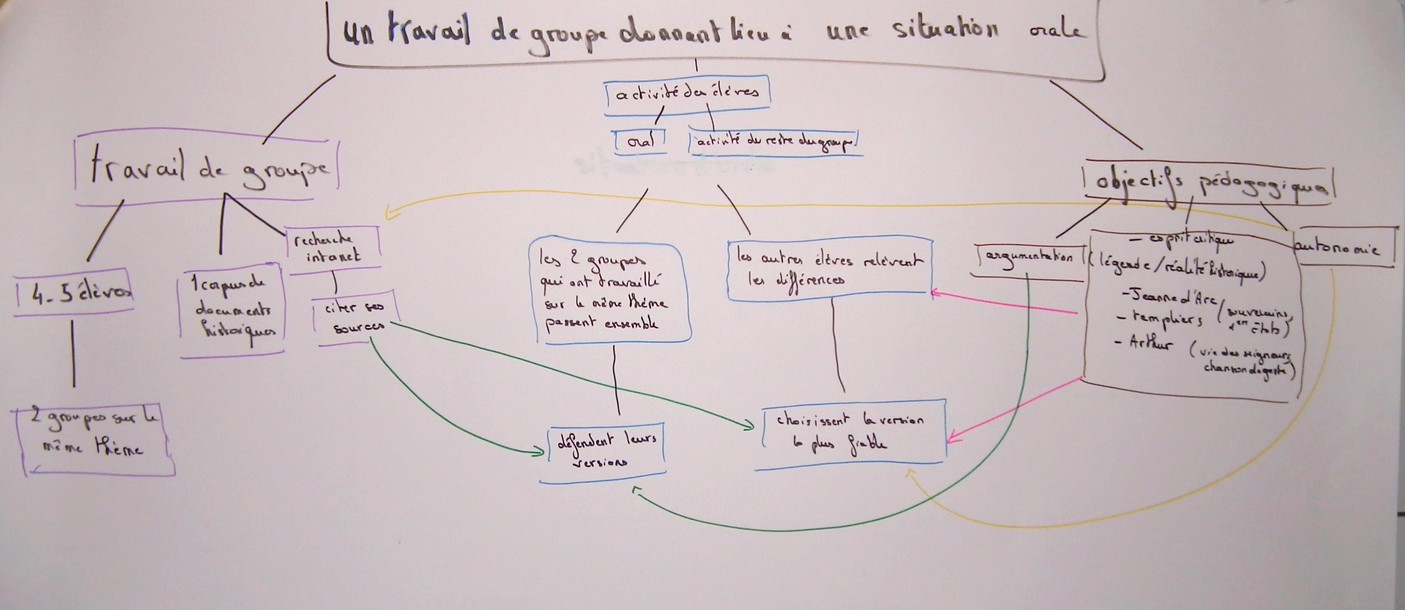 un travail de groupe donnant lieu à une situation orale
activité des élèves
oral
activité du reste du groupe
travail de groupe
objectifs pédagogiques
4-5 élèves
1 corpus de
documents
historiques
recherche
internet
citer ses
sources
2 groupes sur le
même thème
les 2 groupes
qui ont travaillé
sur le même thème
passent ensemble
les autres élèves relèvent
les différences
défendent leurs
versions
choisissent la version
la plus fiable
argumentation
- esprit critique
(légende/réalité historique)
- Jeanne d'Arc
- templiers (souverains,
états)
- Arthur (vie des seigneurs,
chanson de geste)
autonomie